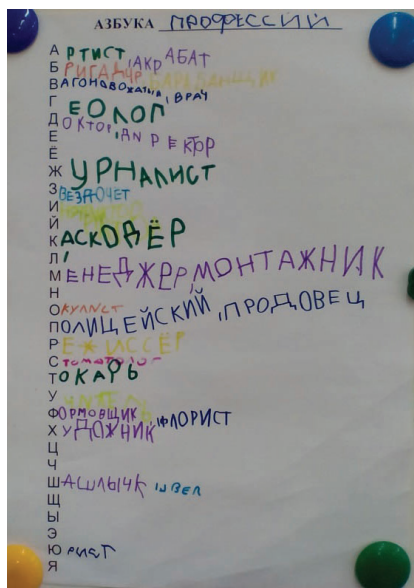 АЗБУКА ПРОФЕССИЙ
АРТИСТ, АКРАБАТ
БРИГАДИР, БАРЕБАНЩИК
ВАГОНОВОЖАТЫЙ, ВРАЧ
ГЕОЛОГ
ДОКТОР, ДИРЕКТОР
Е
Ё
ЖУРНАЛИСТ
ЗВЕЗДОЧЕТ
И
Й
КАСКОДЁР
Л
МЕНЕДЖЕР, МОНТАЖНИК
Н
ОКУЛИСТ
ПОЛИЦЕЙСКИЙ, ПРОДОВЕЦ
РЕЖИССЁР
СТОМАТОЛОГ
ТОКАРЬ
УЧИТЕЛЬ
ФОРМОВЩИК ФЛОРИСТ
ХУДОЖНИК
Ц
Ч
ШАШЛЫЧК ШВЕЛ
Щ
Ы
Э
ЮРИСТ
Я